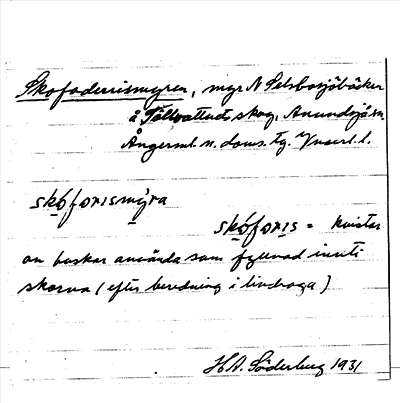 Skofoderrismyren, myr N Selsbosjöbäcken
å Tållvattnets skog, Anundsjö sn.
Ångerml. n. doms. tg. Vnorrl. l.
skóforismỳra
skóforis = kvistar
av buskar använda som fyllnad inuti
skorna (efter beredning i lindraga)
H.A. Söderberg 1931